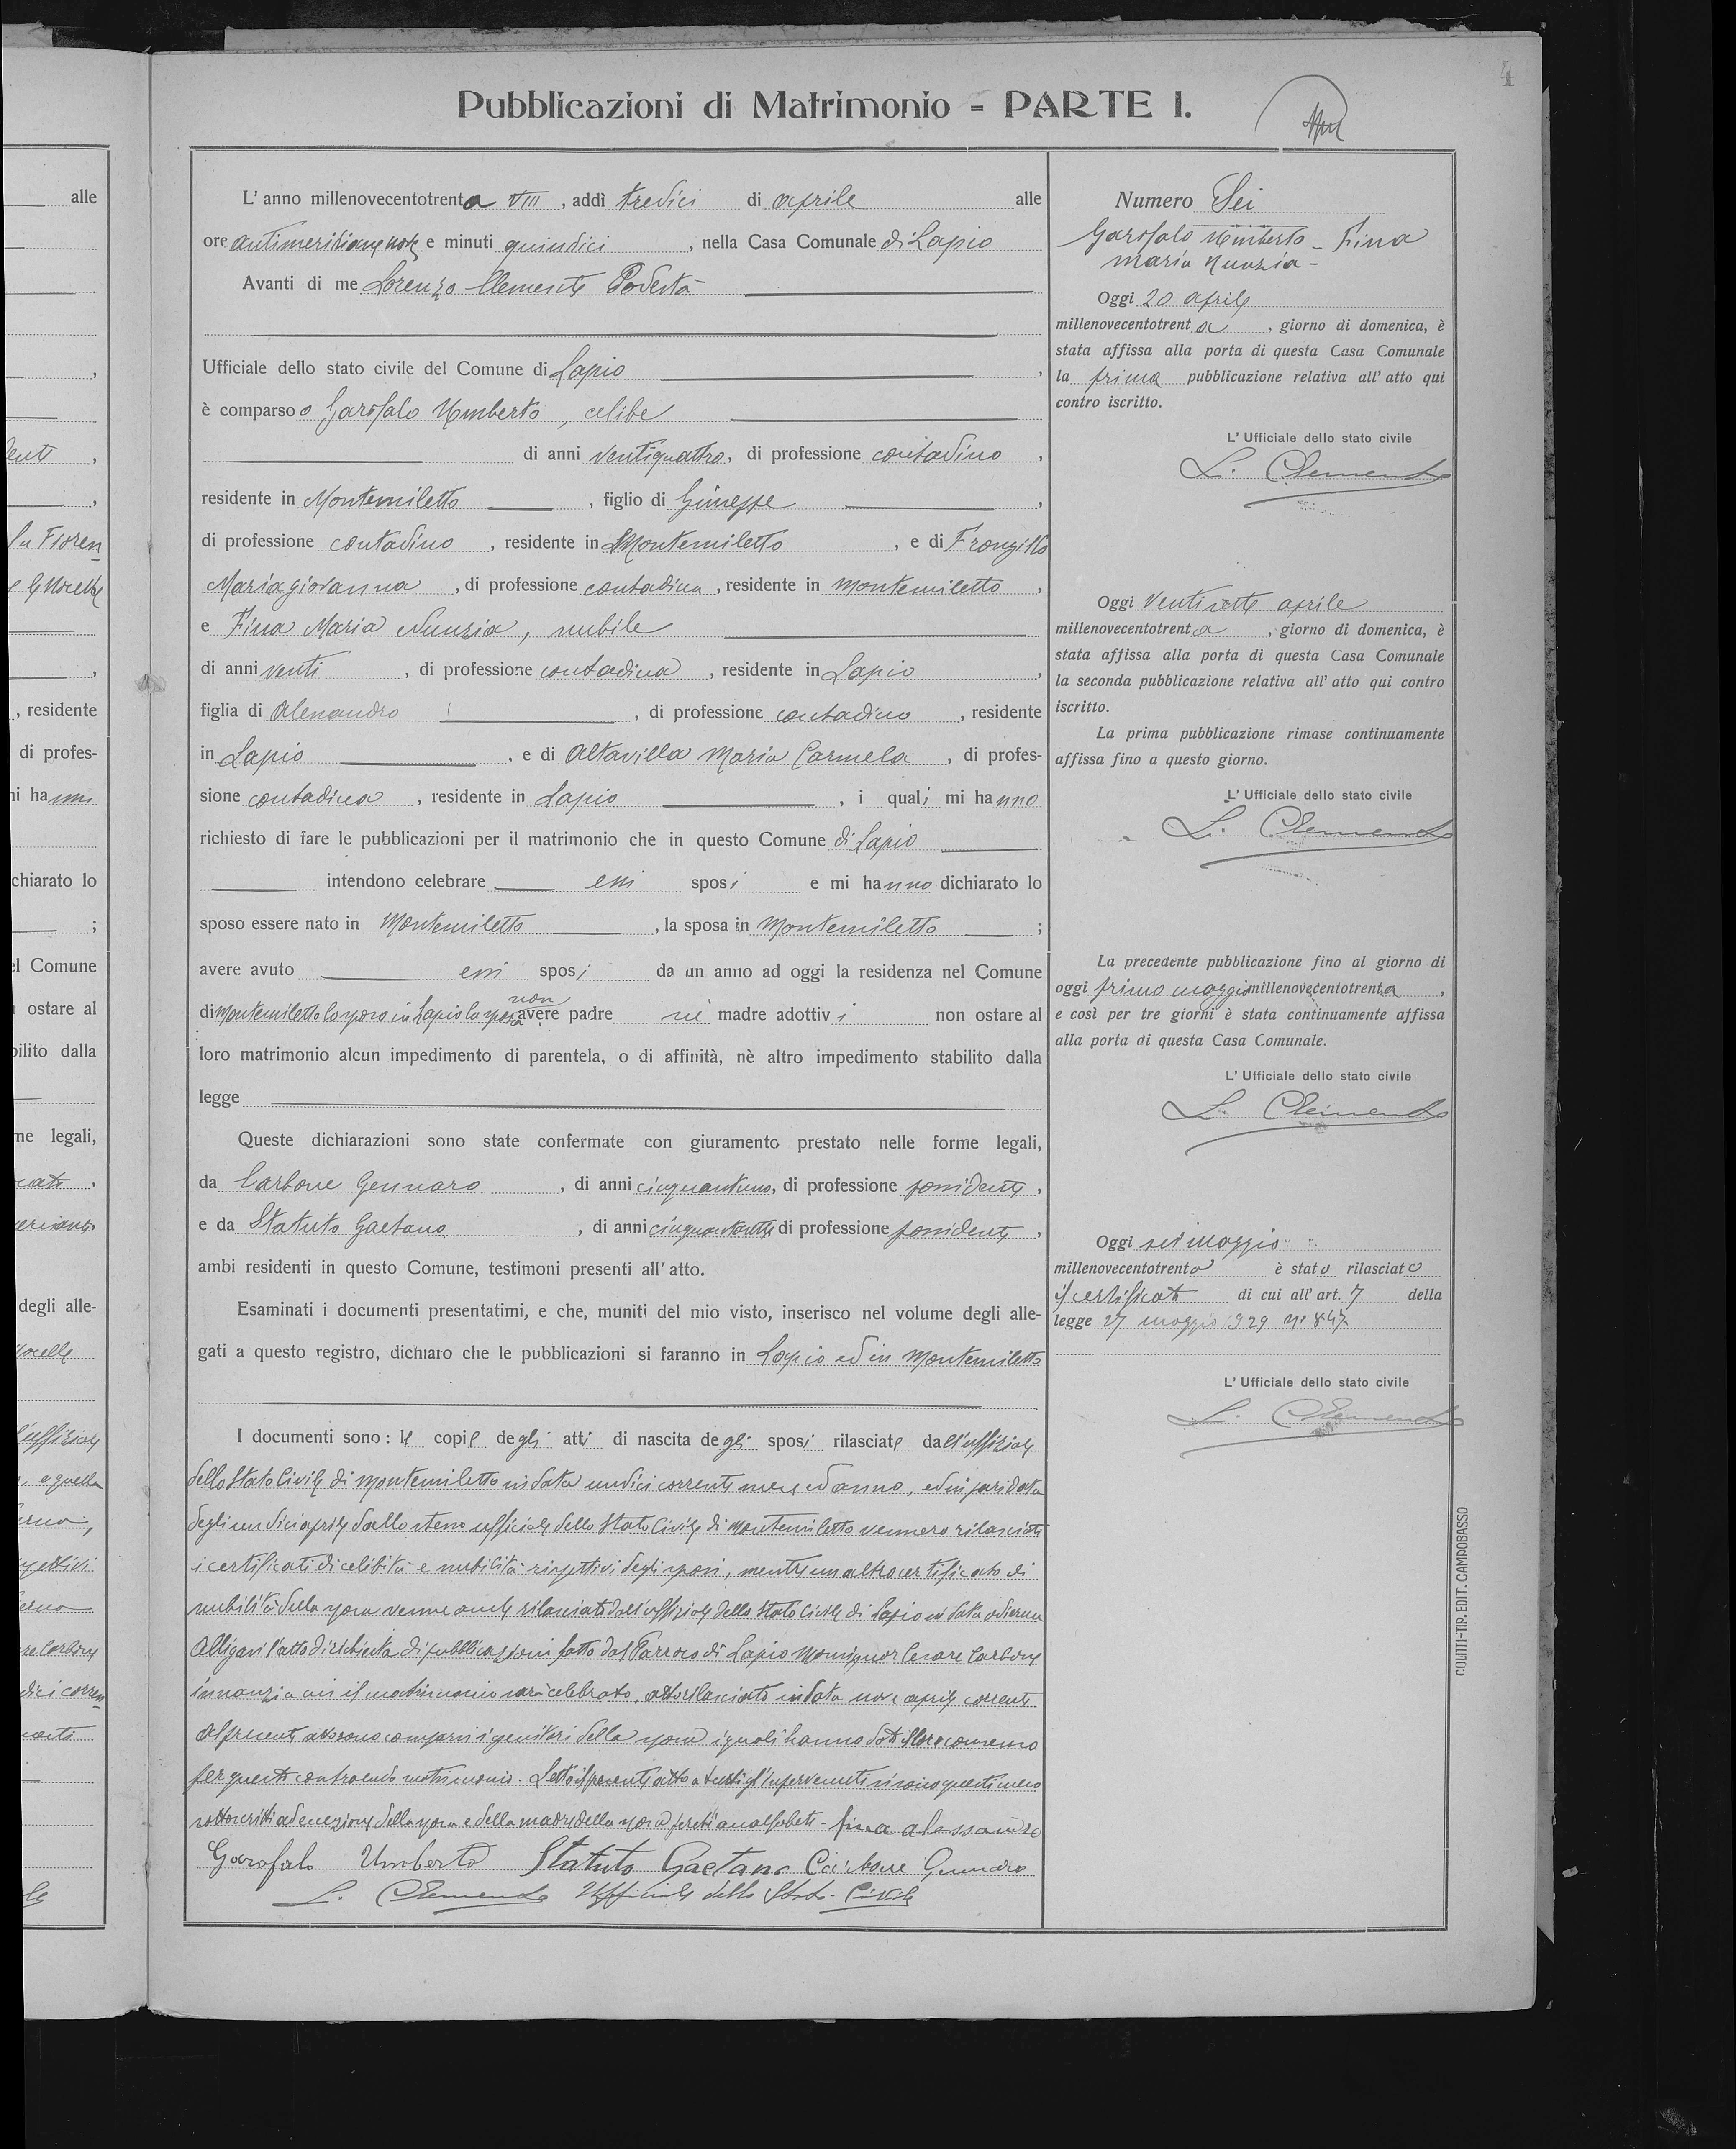 4
Pubblicazioni di Matrimonio = PARTE I.
L' anno millenovecentotrenta VIII, addì tredici di aprile alle
ore antimeridiane nove e minuti quindici, nella Casa Comunale di Lapio
Avanti di me Lorenzo Clemente Podestà
Ufficiale dello stato civile del Comune di Lapio,
è comparso o Garofalo Umberto, celibe
di anni ventiquattro, di professione contadino,
residente in Montemiletto, figlio di Giuseppe,
di professione contadino, residente in Montemiletto, e di Frongillo
Mariagiovanna, di professione contadina, residente in Montemiletto,
e Fina Maria Nunzia, nubile
di anni venti, di professione contadina, residente in Lapio,
figlia di Alessandro, di professione contadino, residente
in Lapio, e di Altavilla Maria Carmela, di profes-
sione contadina, residente in Lapio, i quali mi hanno
richiesto di fare le pubblicazioni per il matrimonio che in questo Comune di Lapio
intendono celebrare essi sposi e mi hanno dichiarato lo
sposo essere nato in Montemiletto, la sposa in Montemiletto;
avere avuto essi sposi da un anno ad oggi la residenza nel Comune
non
di Montemiletto lo sposo in Lapio la sposa avere padre nè madre adottivi non ostare al
loro matrimonio alcun impedimento di parentela, o di affinità, nè altro impedimento stabilito dalla
legge
Queste dichiarazioni sono state confermate con giuramento prestato nelle forme legali,
da Carbone Gennaro, di anni cinquantuno, di professione possidente,
e da Statuto Gaetano, di anni cinquantasette di professione possidente,
ambi residenti in questo Comune, testimoni presenti all' atto.
Esaminati i documenti presentatimi, e che, muniti del mio visto, inserisco nel volume degli alle-
gati a questo registro, dichiaro che le pubblicazioni si faranno in Lapio ed in Montemiletto
I documenti sono: le copie degli atti di nascita degli sposi rilasciate dall'uffiziale
dello Stato Civile di Montemiletto in data undici corrente mese ed anno, ed in pari data
degli undici aprile dallo stesso ufficiale dello Stato Civile di Montemiletto vennero rilasciati
i certificati di celibità e nubilità rispettivi degli sposi, mentre un altro certificato di
nubilità della sposa venne anche rilasciato dall'uffiziale dello Stato Civile di Lapio in data odierna
Alligasi l'atto di richiesta di pubblicazioni fatto dal Parroco di Lapio Monsignor Cesare Carbone
innanzi a cui il matrimonio sarà celebrato, atto rilasciato in data nove aprile corrente.
Al presente atto sono comparsi i genitori della sposa i quali hanno dato il loro consenso
per questo contraendo matrimonio. Letto il presente atto a tutti gl'intervenuti si sono questi meco
sottoscritti ad eccezione della sposa e della madre della sposa perchè analfabete - Fina Alessandro
Garofalo Umberto Statuto Gaetano Carbone Gennaro
L. Clemente Ufficiale dello Stato Civile
Numero Sei
Garofalo Umberto - Fina
Maria Nunzia -
Oggi 20 aprile
millenovecentotrenta, giorno di domenica, è
stata affissa alla porta di questa Casa Comunale
la prima pubblicazione relativa all' atto qui
contro iscritto.
L' Ufficiale dello stato civile
L. Clemente
Oggi ventisette aprile
millenovecentotrenta, giorno di domenica, è
stata affissa alla porta di questa Casa Comunale
la seconda pubblicazione relativa all' atto qui contro
iscritto.
La prima pubblicazione rimase continuamente
affissa fino a questo giorno.
L' Ufficiale dello stato civile
L. Clemente
La precedente pubblicazione fino al giorno di
oggi primo maggio millenovecentotrenta,
e così per tre giorni è stata continuamente affissa
alla porta di questa Casa Comunale.
L' Ufficiale dello stato civile
L. Clemente
Oggi sei maggio
millenovecentotrenta è stato rilasciato
il certificato di cui all' art. 7 della
legge 27 maggio 1929 n° 847
L' Ufficiale dello stato civile
L. Clemente
COLITTI-TIP. EDIT. CAMPOBASSO
alle
, residente
di profes-
chiarato lo
el Comune
ostare al
bilito dalla
me legali,
degli alle-